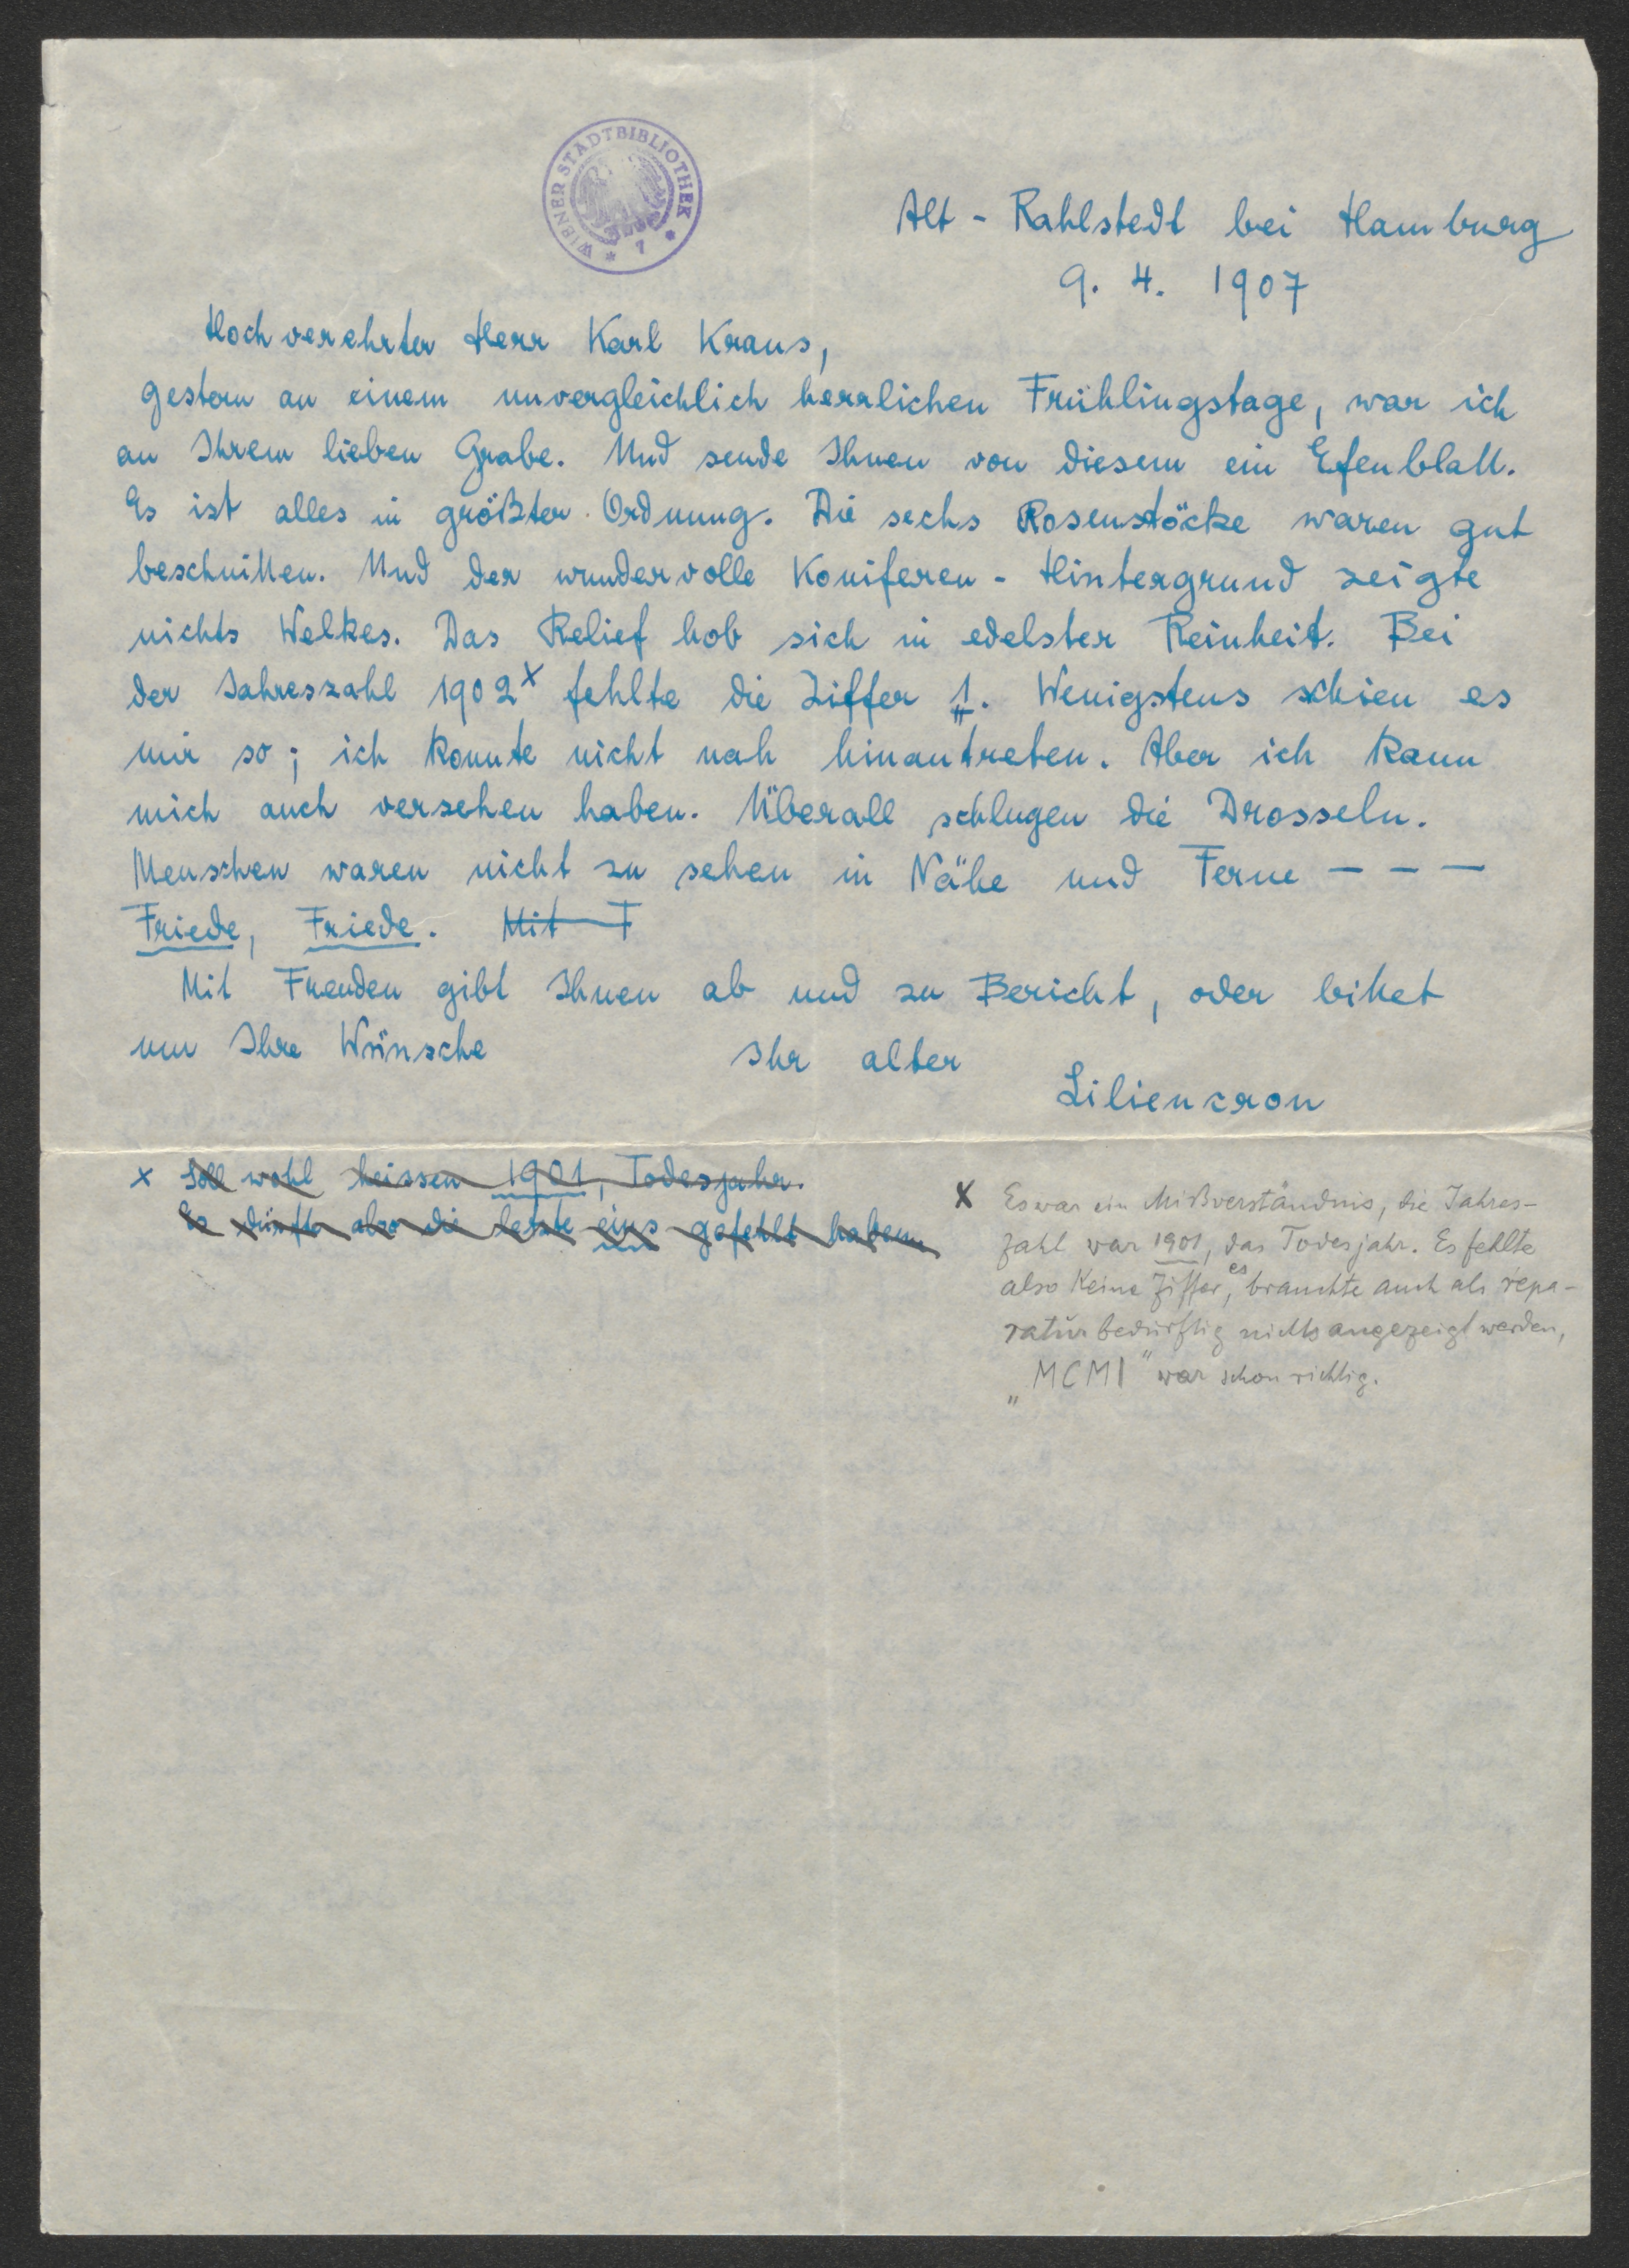 WIENER STADTBIBLIOTHEK * 7 *
Alt - Rahlstedt bei Hamburg
9. 4. 1907
Hochverehrter Herr Karl Kraus,
gestern an einem unvergleichlich herrlichen Frühlingstage, war ich
an Ihrem lieben Grabe. Und sende Ihnen von diesem ein Efenblatt.
Es ist alles in größter Ordnung. Die sechs Rosenstöcke waren gut
beschnitten. Und der wundervolle Koniferen - Hintergrund zeigte
nichts Welkes. Das Relief hob sich in edelster Reinheit. Bei
der Jahreszahl 1902 x fehlte die Ziffer 1. Wenigstens schien es
mir so; ich konnte nicht nah hinantreten. Aber ich kann
mich auch versehen haben. Überall schlugen die Drosseln.
Menschen waren nicht zu sehen in Nähe und Ferne - - -
Friede, Friede. Mit F
Mit Freuden gibt Ihnen ab und zu Bericht, oder bittet
um Ihre Wünsche Ihr alter
Liliencron
x Soll wohl heissen 1901, Todesjahr.
Es dürfte also die letzte eins gefehlt haben.
x Es war ein Mißverständnis, die Jahres-
zahl war 1901, das Todesjahr. Es fehlte
also keine Ziffer, es brauchte auch als repa-
raturbedürftig nichts angezeigt werden,
„MCMI" war schon richtig.